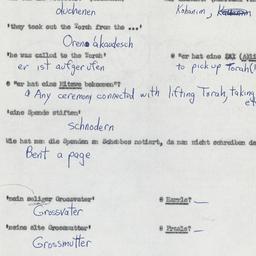 duchenen
Kohanim,
'they took out the Torah from the ...'
Oren hakaudesch
'he was called to the Torah'
er ist aufgerufen
@ "er hat eine
to pick up Torah
@ "er hat eine Mitzwe bekommen"?
Any ceremony connected with lifting Torah, taking
'eine Spende stiften'
schnodern
Wie hat man die Spenden am Schabbes notiert, da man nicht schreiben da
Bent a page
'mein seliger Grossvater'
@ Harle? —
Grossvater
'meine alte Grossmutter'
@ Frale? —
Grossmutter